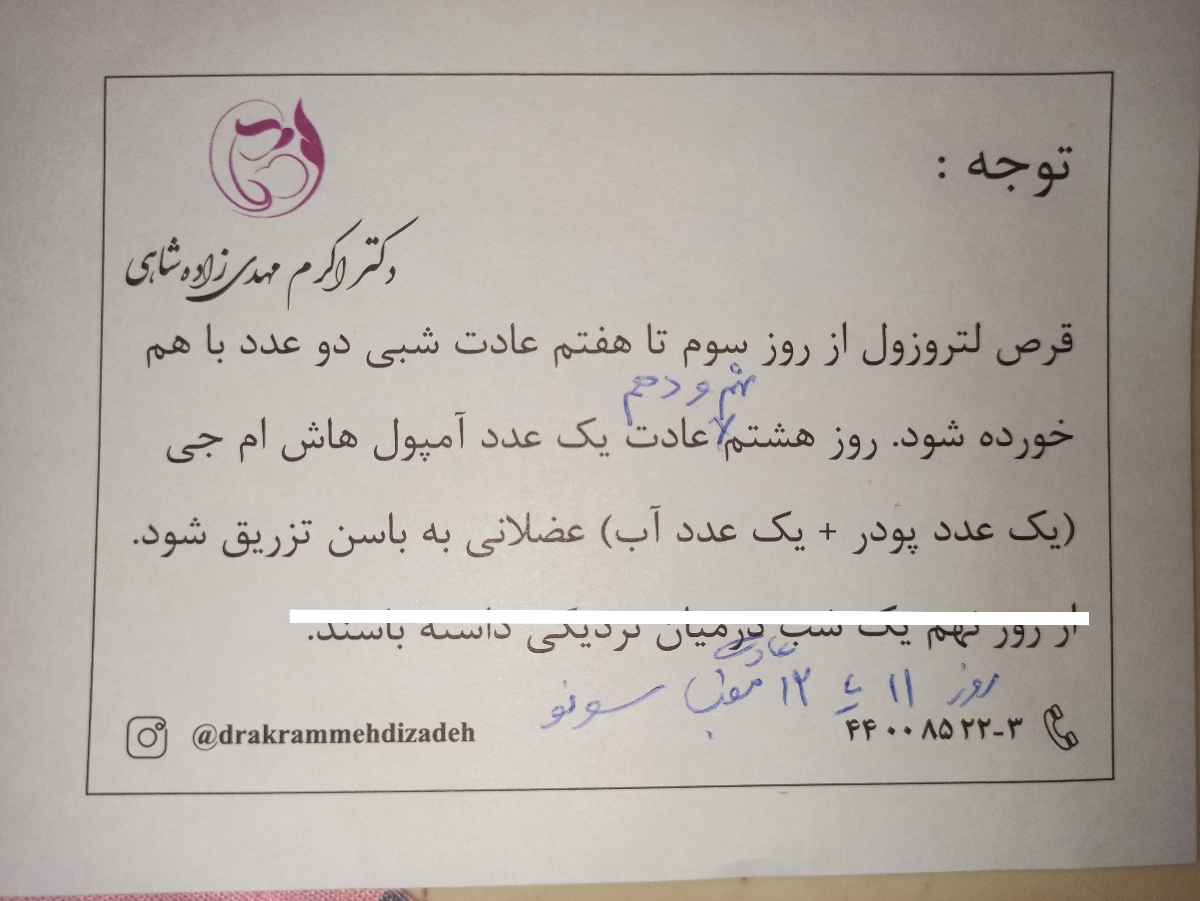 توجه :
دکتر اکرم مهدی زاده شاهی
قرص لتروزول از روز سوم تا هفتم عادت شبی دو عدد با هم
نهم و دهم
خورده شود. روز هشتم عادت یک عدد آمپول هاش ام جی
(یک عدد پودر + یک عدد آب) عضلانی به باسن تزریق شود.
از روز نهم یک شب درمیان نزدیکی داشته باشند.
عادت
روز ۱۱ یا ۱۲ سونو
۴۴۰۰۸۵۲۲-۳
@drakrammehdizadeh